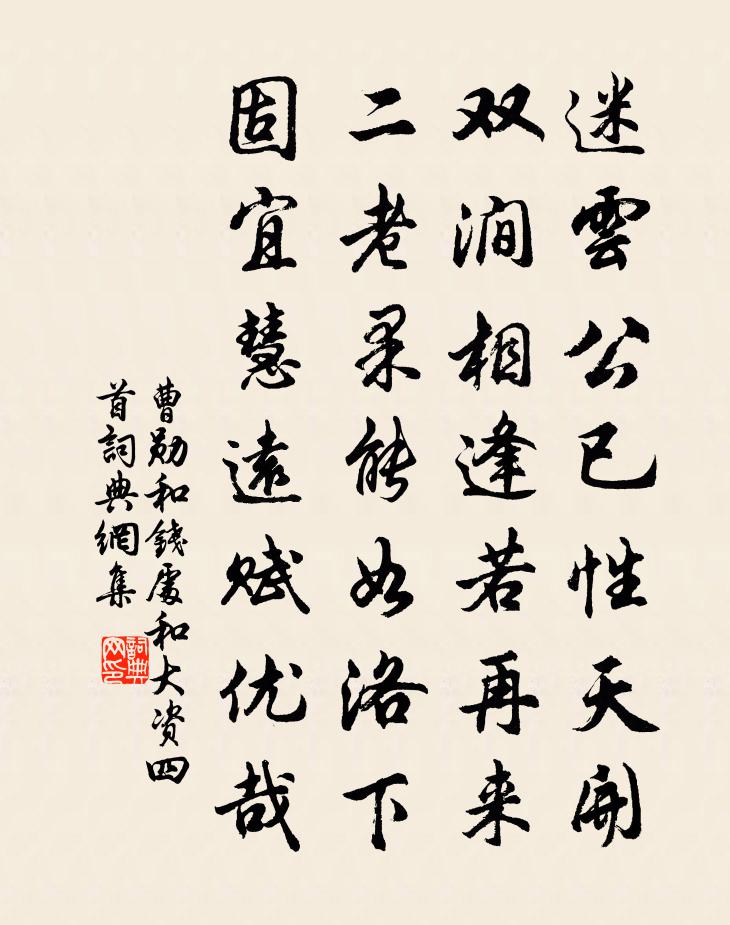 迷雲公已性天開
双澗相逢若再来
二老果能如洛下
固宜慧遠赋优哉
曹勋和錢處和大资四
首詞典網集
詞典网印